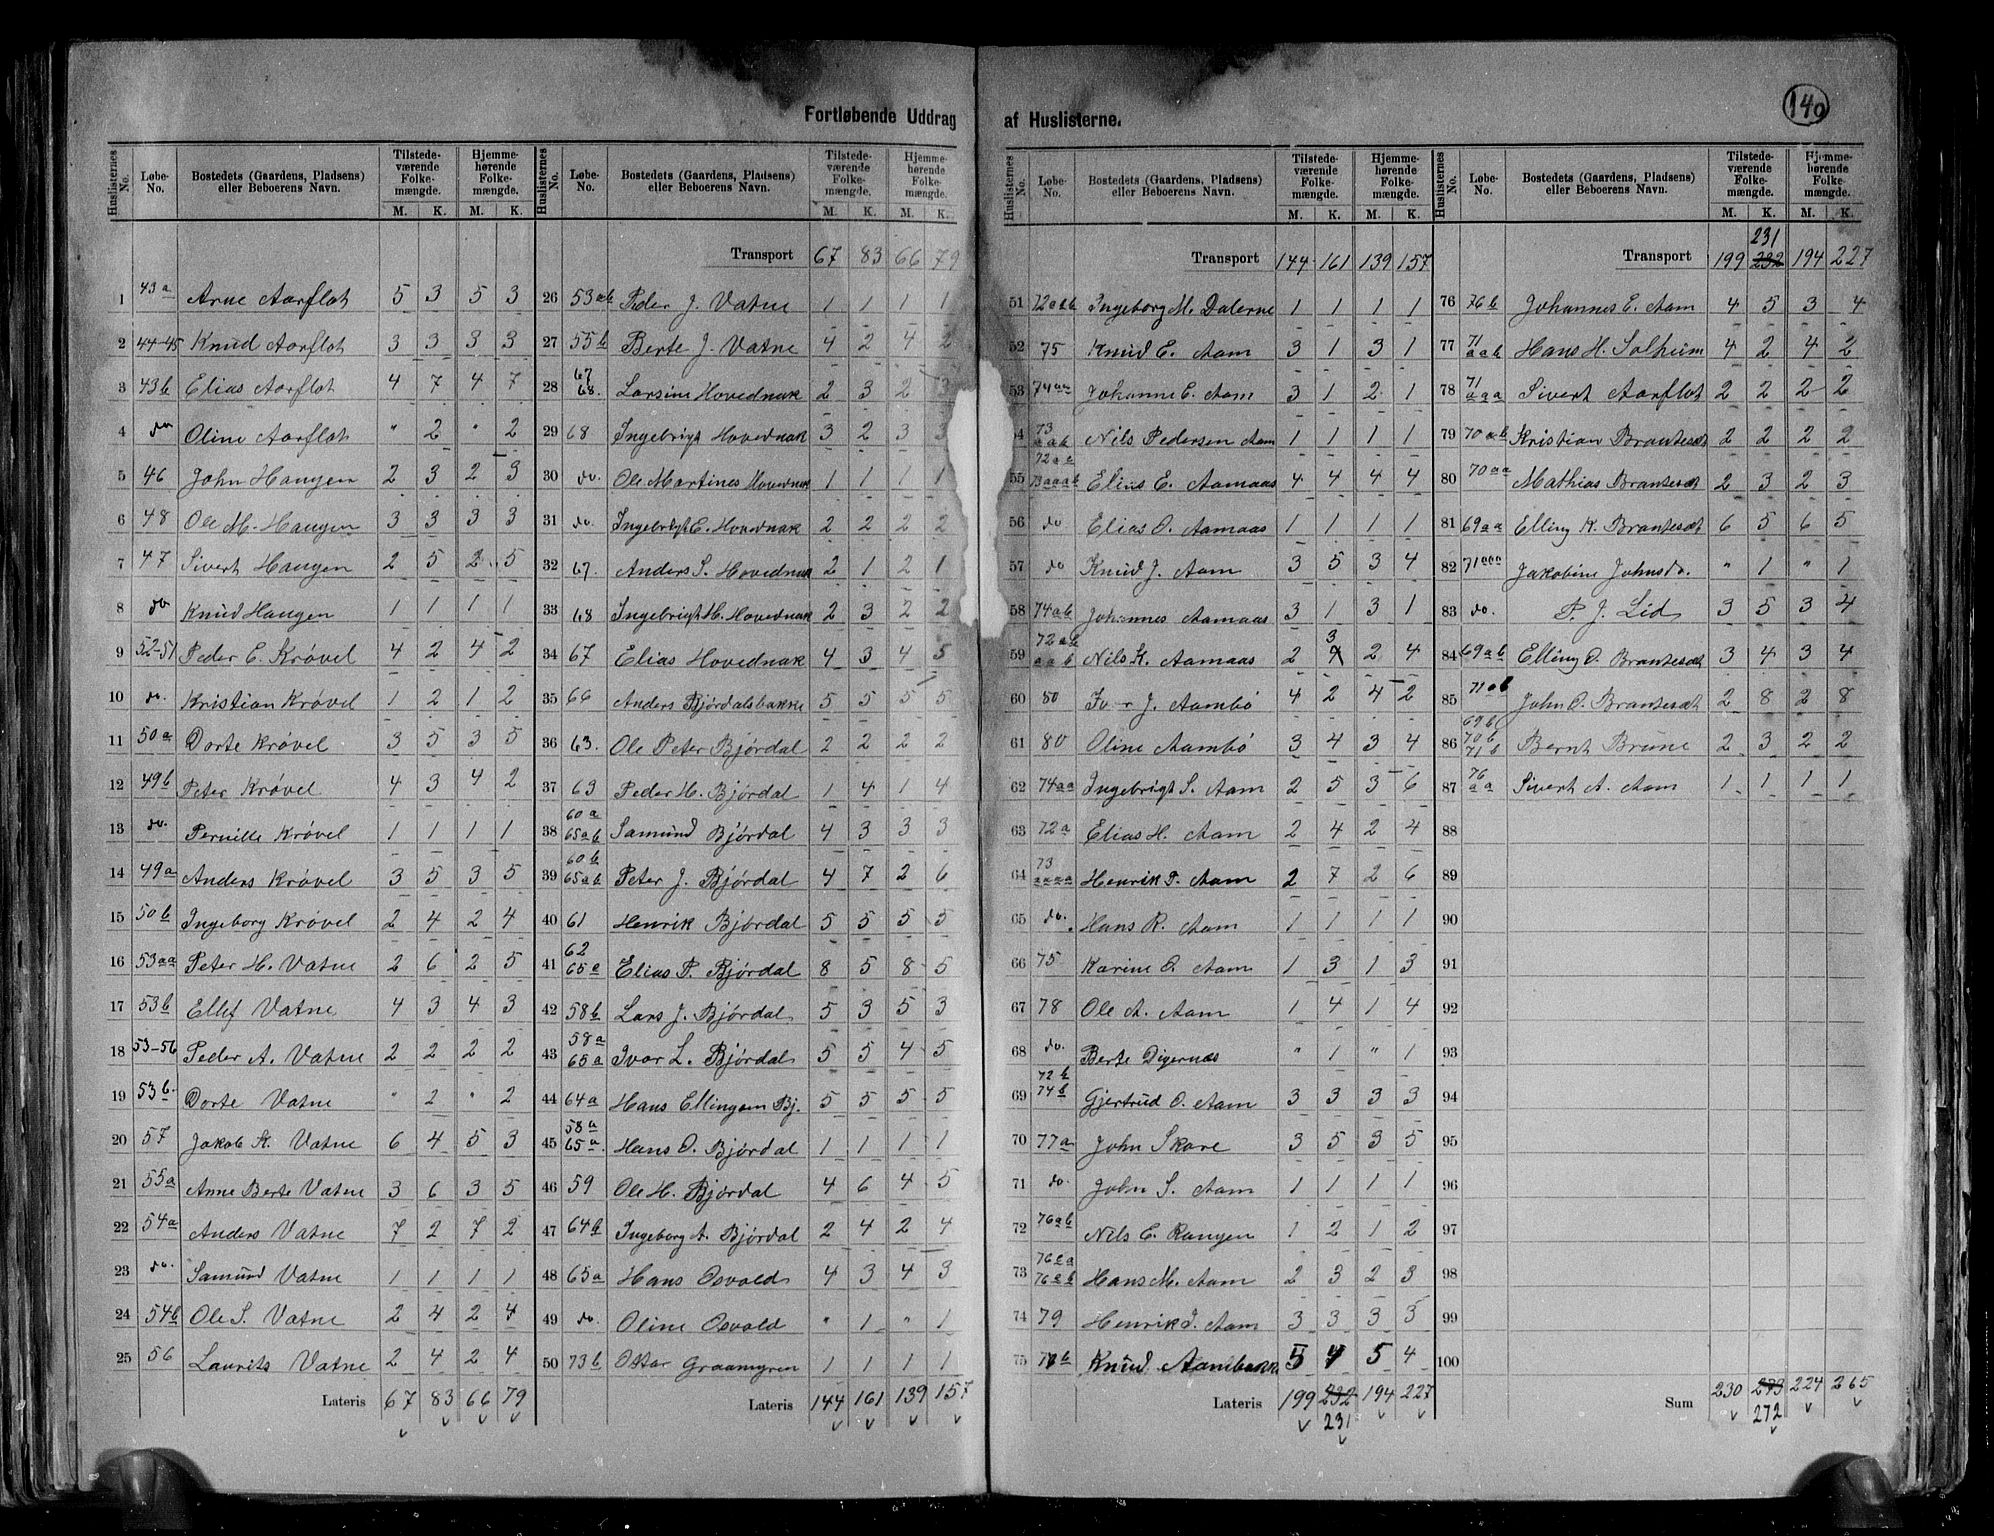 140
Fortløbende Uddrag af Huslisterne.
Huslisternes No. Løbe-No. Bostedets (Gaardens, Pladsens) eller Beboerens Navn. Tilstedeværende Folkemængde. M. K. Hjemmehørende Folkemængde. M. K.
1 43a Arne Aarflot 5 3 5 3
2 44-45 Knud Aarflot 3 3 3 3
3 43b Elias Aarflot 4 7 4 7
4 do Oline Aarflot " 2 " 2
5 46 John Haugen 2 3 2 3
6 48 Ole M. Haugen 3 3 3 3
7 47 Sivert Haugen 2 5 2 5
8 do Knud Haugen 1 1 1 1
9 52-51 Peder E. Krøvel 4 2 4 2
10 do. Kristian Krøvel 1 2 1 2
11 50a Dorte Krøvel 3 5 3 5
12 49b Peter Krøvel 4 3 4 2
13 do. Pernille Krøvel 1 1 1 1
14 49a Anders Krøvel 3 5 3 5
15 50b Ingeborg Krøvel 2 4 2 4
16 53aa Peter H. Vatne 2 6 2 5
17 53b Ellef Vatne 4 3 4 3
18 53-56 Peder A. Vatne 2 2 2 2
19 53b. Dorte Vatne " 2 " 2
20 57 Jakob K. Vatne 6 4 5 3
21 55a Anne Berte Vatne 3 6 3 5
22 54a Anders Vatne 7 2 7 2
23 do. Samund Vatne 1 1 1 1
24 54b Ole S. Vatne 2 4 2 4
25 56 Laurits Vatne 2 4 2 4
Lateris 67 83 66 79
Huslisternes No. Løbe-No. Bostedets (Gaardens, Pladsens) eller Beboerens Navn. Tilstedeværende Folkemængde. M. K. Hjemmehørende Folkemængde. M. K.
Transport 67 83 66 79
26 53ab Peder J. Vatne 1 1 1 1
27 55b Berte J. Vatne 4 2 4 2
28 67 68. Larsine Hovednak 2 3 2 3
29 68 Ingebrigt Hovednak 3 2 3 3
30 do. Ole Martines Hovednak 1 1 1 1
31 do. Ingebrigt E. Hovednak 2 2 2 2
32 67. Anders S. Hovednak 2 1 2 1
33 68 Ingebrigt H. Hovednak 2 3 2 2
34 67 Elias Hovednak 4 3 4 5
35 66 Anders Bjørdalsbakke 5 5 5 5
36 63. Ole Peter Bjørdal 2 2 2 2
37 63 Peder H. Bjørdal 1 4 1 4
38 60a 65ab Samund Bjørdal 4 3 3 3
39 60b 65ab Peter J. Bjørdal 4 7 2 6
40 61 Henrik Bjørdal 5 5 5 5
41 62 65a Elias P. Bjørdal 8 5 8 5
42 58b Lars J. Bjørdal 5 3 5 3
43 58a 65a Ivar L. Bjørdal 5 5 4 5
44 64a Hans Ellingsen Bj. 5 5 5 5
45 58a 65a. Hans O. Bjørdal 1 1 1 1
46 59 Ole H. Bjørdal 4 6 4 5
47 64b Ingeborg A. Bjørdal 2 4 2 4
48 65a Hans Osvald 4 3 4 3
49 do. Oline Osvald " 1 " 1
50 73b Ostar Graamyren 1 1 1 1
Lateris 144 161 139 157
Huslisternes No. Løbe-No. Bostedets (Gaardens, Pladsens) eller Beboerens Navn. Tilstedeværende Folkemængde. M. K. Hjemmehørende Folkemængde. M. K.
Transport 144 161 139 157
51 72aab Ingeborg M. Dalerne 1 1 1 1
52 75 Knud E. Aam 3 1 3 1
53 74aa Johanne E. Aam 3 1 2 1
54 73 aab Nils Pedersen Aam 1 1 1 1
55 72aa 73aaab Elias E. Aamaas 4 4 4 4
56 do Elias O. Aamaas 1 1 1 1
57 do Knud J. Aam 3 5 3 4
58 74ab Johannes Aamaas 3 1 3 1
59 72ab aab Nils K. Aamaas 2 3 4 2 4
60 80 Iver J. Aambø 4 2 4 2
61 80 Oline Aambø 3 4 3 4
62 74aa Ingebrigt S. Aam 2 5 3 6
63 72a Elias H. Aam 2 4 2 4
64 73 aaaa Henrik P. Aam 2 7 2 6
65 do. Hans R. Aam 1 1 1 1
66 75 Karine O. Aam 1 3 1 3
67 78 Ole A. Aam 1 4 1 4
68 do. Berte Digernes " 1 " 1
69 72b 74b Gjertrud O. Aam 3 3 3 3
70 77a John Skare 3 5 3 5
71 do. John S. Aam 1 1 1 1
72 76ab Nils E. Rangen 1 2 1 2
73 Hans M. Aam 2 3 2 3
74 79 Henrik J. Aam 3 3 3 3
75 77b Knud Aambakk 5 4 5 4
Lateris 199 232 194 227
231
Huslisternes No. Løbe-No. Bostedets (Gaardens, Pladsens) eller Beboerens Navn. Tilstedeværende Folkemængde. M. K. Hjemmehørende Folkemængde. M. K.
231
Transport 199 232 194 227
76 76b Johannes E. Aam 4 5 3 4
77 71 aab Hans H. Solheim 4 2 4 2
78 71 aaa Sivert Aarflot 2 2 2 2
79 70ab Kristian Brautesæt 2 2 2 2
80 70aa Mathias Brautesæt 2 3 2 3
81 69aa Elling K. Brautesæt 6 5 6 5
82 71aaa Jakobine Johnsdr. " 1 " 1
83 do. P. J. Lid 3 5 3 4
84 69ab Elling O. Brautesæt 3 4 3 4
85 71ab John O. Brautesæt 2 8 2 8
86 69b 70b 71b Bernt Brune 2 3 2 2
87 76 aa Sivert A. Aam 1 1 1 1
88
89
90
91
92
93
94
95
96
97
98
99
100
Sum 230 273 224 265
272